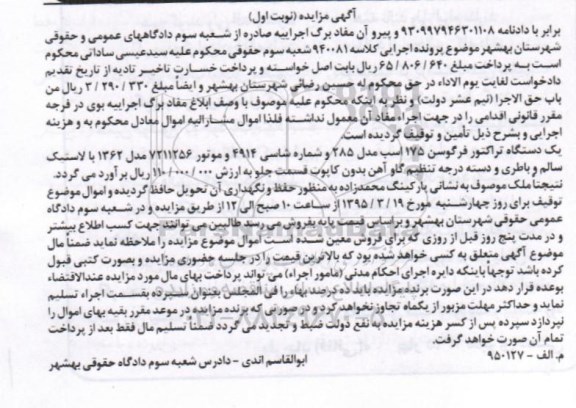 آگهی مزایده (نوبت اول)
برابر با دادنامه ۹۳۰۹۹۷۹۴۶۳۰۱۱۰۸ و پیرو آن مفاد برگ اجراییه صادره از شعبه سوم دادگاههای عمومی و حقوقی
شهرستان بهشهر موضوع پرونده اجرایی کلاسه ۹۴۰۰۸۱ شعبه سوم حقوقی محکوم علیه سیدعیسی ساداتی محکوم
است به پرداخت مبلغ ۶۴۰ / ۸۰۶ / ۶۵ ریال بابت اصل خواسته و پرداخت خسارت تاخیر تادیه از تاریخ تقدیم
دادخواست لغایت یوم الاداء در حق محکوم له حسین رضائی شهرستان بهشهر و ایضاً مبلغ ۳۳۰ / ۲۹۰ / ۳ ریال من
باب حق الاجرا (نیم عشر دولت) و نظر به اینکه محکوم علیه موصوف با وصف ابلاغ مفاد برگ اجراییه بوی در فرجه
مقرر قانونی اقدامی را در جهت اجراء مفاد آن معمول نداشته فلذا اموال مشارالیه اموال معادل محکوم به و هزینه
اجرایی و بشرح ذیل تأمین و توقیف گردیده است
یک دستگاه تراکتور فرگوسن ۱۷۵ اسب مدل ۲۸۵ و شماره شاسی ۴۹۱۴ و موتور ۷۲۱۱۲۵۶ مدل ۱۳۶۲ با لاستیک
سالم و باطری و دسته درجه تنظیم گاو آهن بدون کاپوت قسمت جلو به ارزش ۰۰۰ / ۰۰۰ / ۱۱۰ ریال بر آورد می گردد.
نتیجتا ملک موصوف به نشانی پارکینگ محمدزاده به منظور حفظ و نگهداری آن تحویل حافظ گردیده و اموال موضوع
توقیف برای روز چهارشنبه مورخ ۱۹ / ۳ / ۱۳۹۵ از ساعت ۱۰ صبح الی ۱۲ از طریق مزایده و در شعبه سوم دادگاه
عمومی حقوقی شهرستان بهشهر و براساس قیمت پایه بفروش می رسد طالبین می توانند جهت کسب اطلاع بیشتر
و در مدت پنج روز قبل از روزی که برای فروش معین شده است اموال موضوع مزایده را ملاحظه نماید ضمناً مال
موضوع آگهی متعلق به کسی خواهد شد بود که بالاترین قیمت را در جلسه حضوری مزایده و بصورت کتبی قبول
کرده باشد توجها باینکه دایره اجرای احکام مدنی (مامور اجراء) می تواند پرداخت بهای مال مورد مزایده عندالاقتضاء
بوعده قرار دهد در این صورت برنده مزایده باید ده درصد بهاء را فی المجلس بعنوان سپرده بقسمت اجراء تسلیم
نماید و حداکثر مهلت مزبور از یکماه تجاوز نخواهد کرد و در صورتی که برنده مزایده در موعد مقرر بقیه بهای اموال را
نپردازد سپرده پس از کسر هزینه مزایده به نفع دولت ضبط و تجدید می گردد ضمناً تسلیم مال فقط بعد از پرداخت
تمام آن صورت خواهد گرفت.
م. الف - ۹۵۰۱۲۷ ابوالقاسم اندی - دادرس شعبه سوم دادگاه حقوقی بهشهر